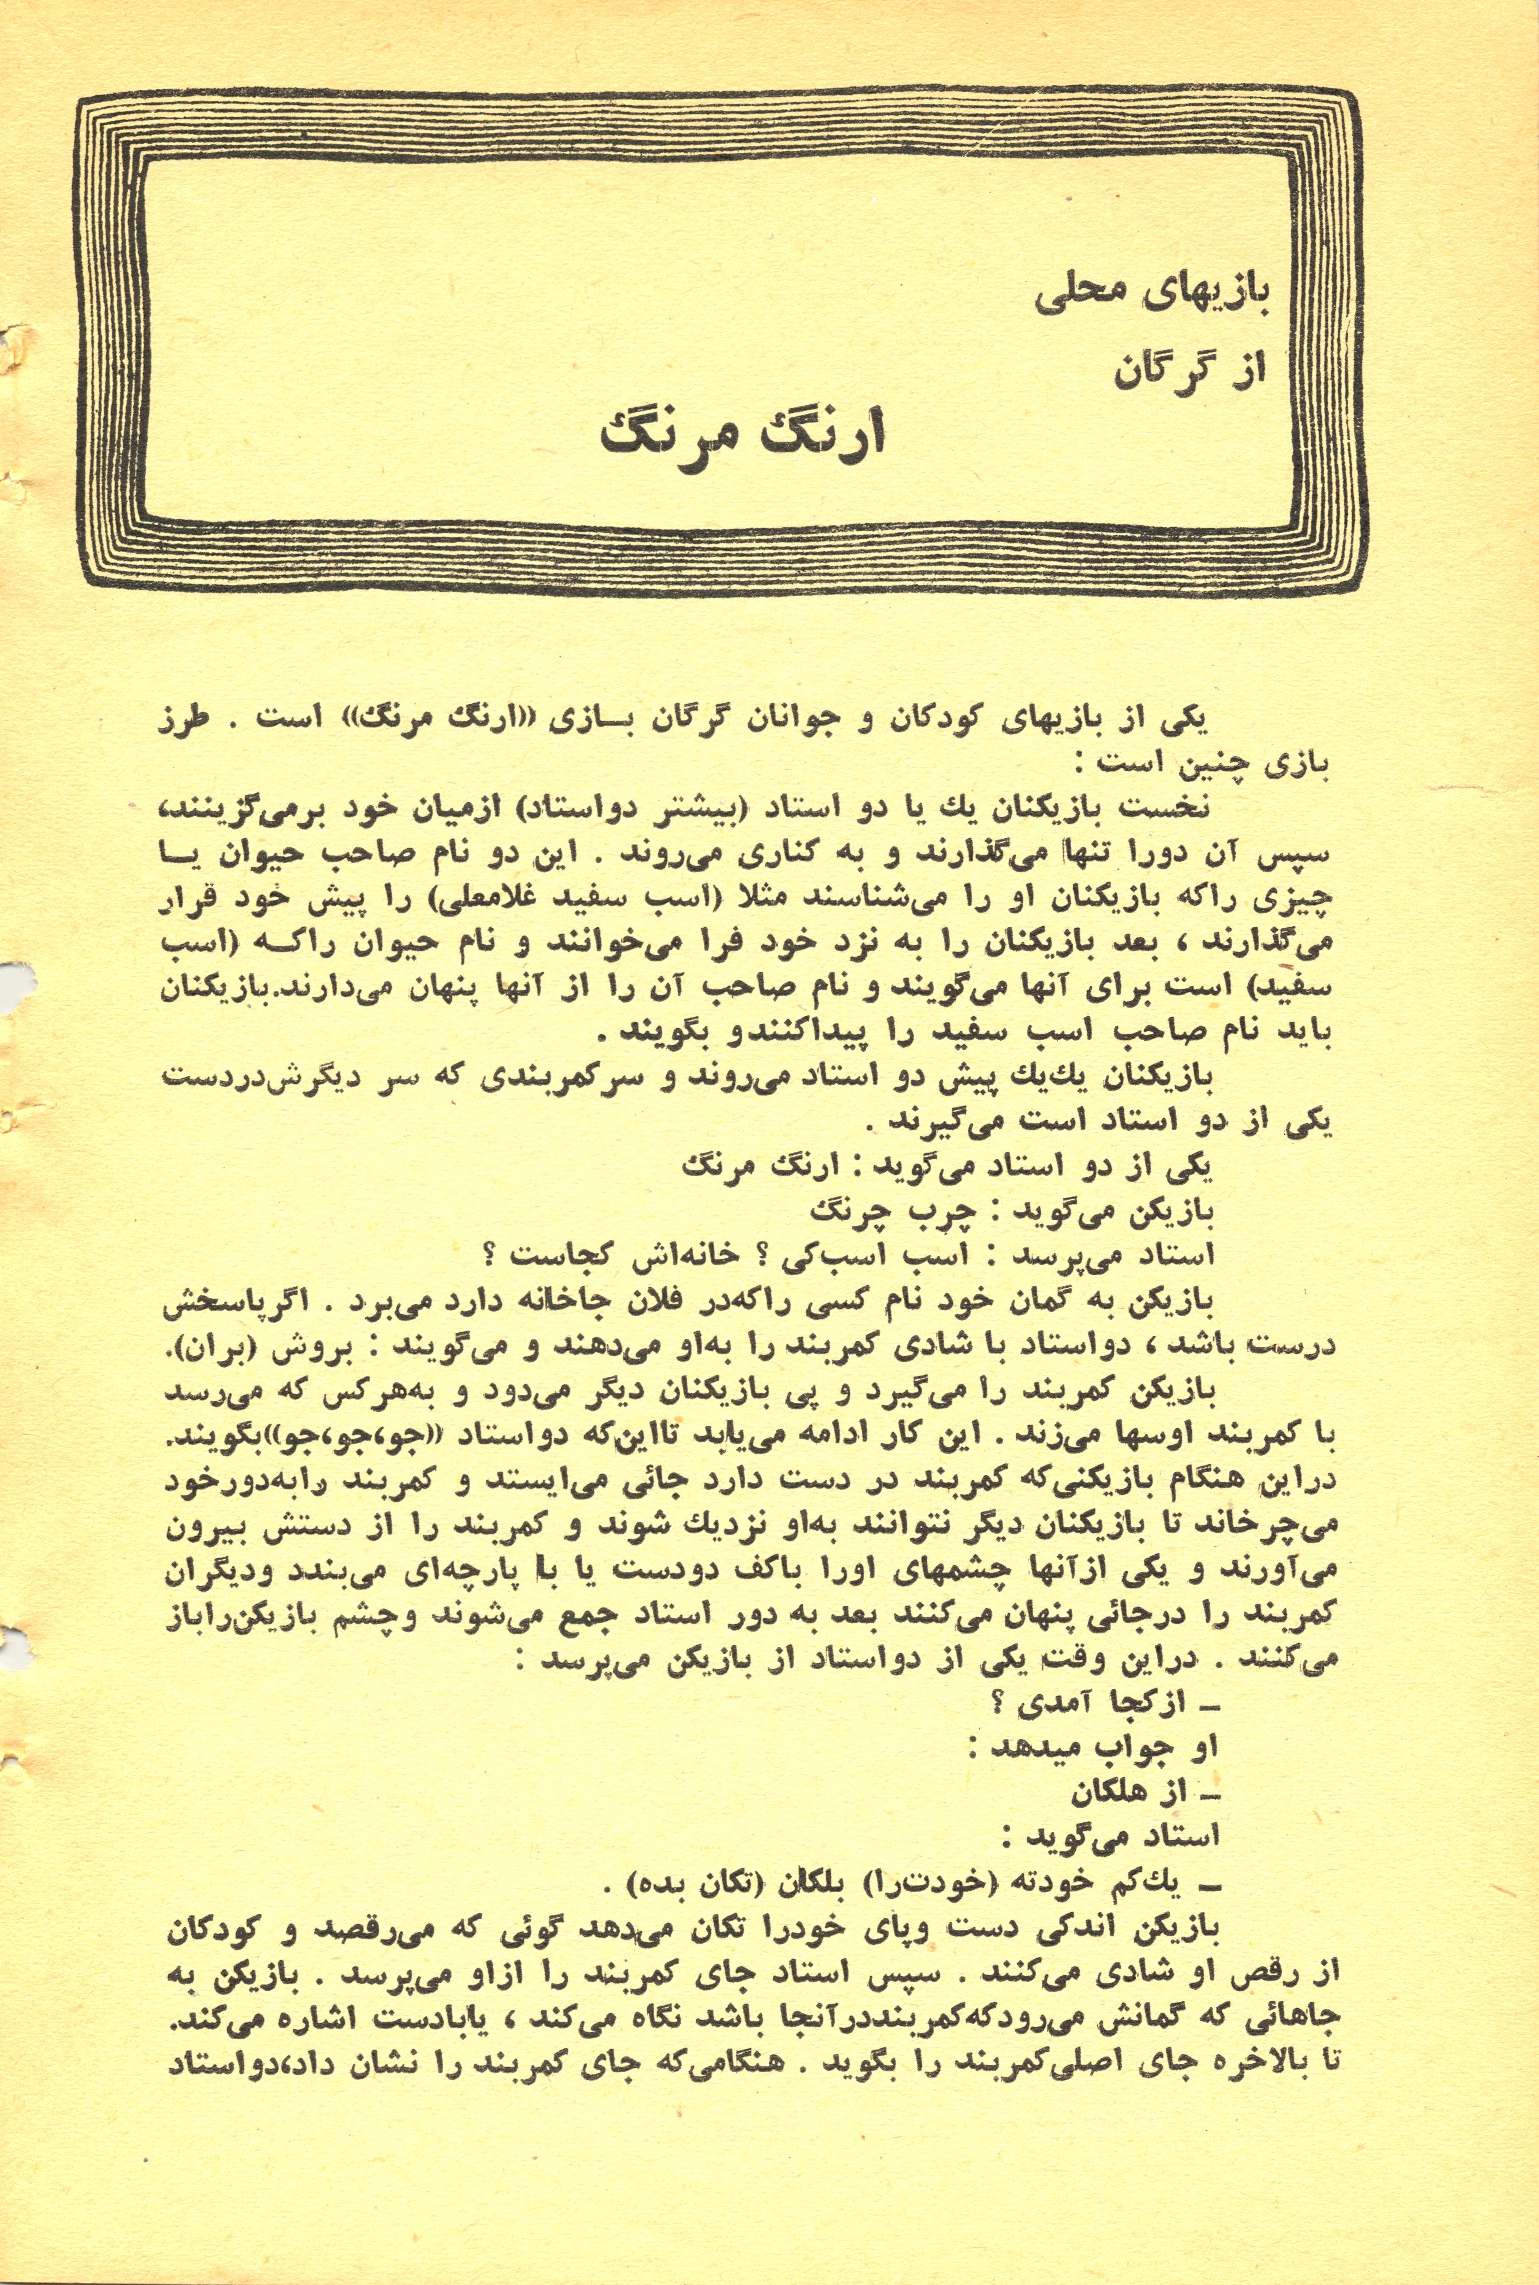 بازیهای محلی
از گرگان
ارنگ مرنگ
یکی از بازیهای کودکان و جوانان گرگان بــازی «ارنگ مرنگ» است . طرز
بازی چنین است :
نخست بازیکنان یك یا دو استاد (بیشتر دواستاد) ازمیان خود برمی‌گزینند،
سپس آن دورا تنها می‌گذارند و به کناری می‌روند . این دو نام صاحب حیوان یــا
چیزی راکه بازیکنان او را می‌شناسند مثلا (اسب سفید غلامعلی) را پیش خود قرار
می‌گذارند ، بعد بازیکنان را به نزد خود فرا می‌خوانند و نام حیوان راکــه (اسب
سفید) است برای آنها می‌گویند و نام صاحب آن را از آنها پنهان می‌دارند.بازیکنان
باید نام صاحب اسب سفید را پیداکنندو بگویند .
بازیکنان یك‌یك پیش دو استاد می‌روند و سرکمربندی که سر دیگرش‌دردست
یکی از دو استاد است می‌گیرند .
یکی از دو استاد می‌گوید : ارنگ مرنگ
بازیکن می‌گوید : چرب چرنگ
استاد می‌پرسد : اسب اسب‌کی ؟ خانه‌اش کجاست ؟
بازیکن به گمان خود نام کسی راکه‌در فلان جاخانه دارد می‌برد . اگرپاسخش
درست باشد ، دواستاد با شادی کمربند را به‌او می‌دهند و می‌گویند : بروش (بران).
بازیکن کمربند را می‌گیرد و پی بازیکنان دیگر می‌دود و به‌هرکس که می‌رسد
با کمربند اوسها می‌زند . این کار ادامه می‌یابد تااین‌که دواستاد «جو،جو،جو»بگویند.
دراین هنگام بازیکنی‌که کمربند در دست دارد جائی می‌ایستد و کمربند رابه‌دورخود
می‌چرخاند تا بازیکنان دیگر نتوانند به‌او نزدیك شوند و کمربند را از دستش بیرون
می‌آورند و یکی ازآنها چشمهای اورا باکف دودست یا با پارچه‌ای می‌بندد ودیگران
کمربند را درجائی پنهان می‌کنند بعد به دور استاد جمع می‌شوند وچشم بازیکن‌راباز
می‌کنند . دراین وقت یکی از دواستاد از بازیکن می‌پرسد :
ـ ازکجا آمدی ؟
او جواب میدهد :
ـ از هلکان
استاد می‌گوید :
ـ یك‌کم خودته (خودت‌را) بلکان (تکان بده) .
بازیکن اندکی دست وپای خودرا تکان می‌دهد گوئی که می‌رقصد و کودکان
از رقص او شادی می‌کنند . سپس استاد جای کمربند را ازاو می‌پرسد . بازیکن به
جاهائی که گمانش می‌رودکه‌کمربنددرآنجا باشد نگاه می‌کند ، یابادست اشاره می‌کند.
تا بالاخره جای اصلی‌کمربند را بگوید . هنگامی‌که جای کمربند را نشان داد،دواستاد